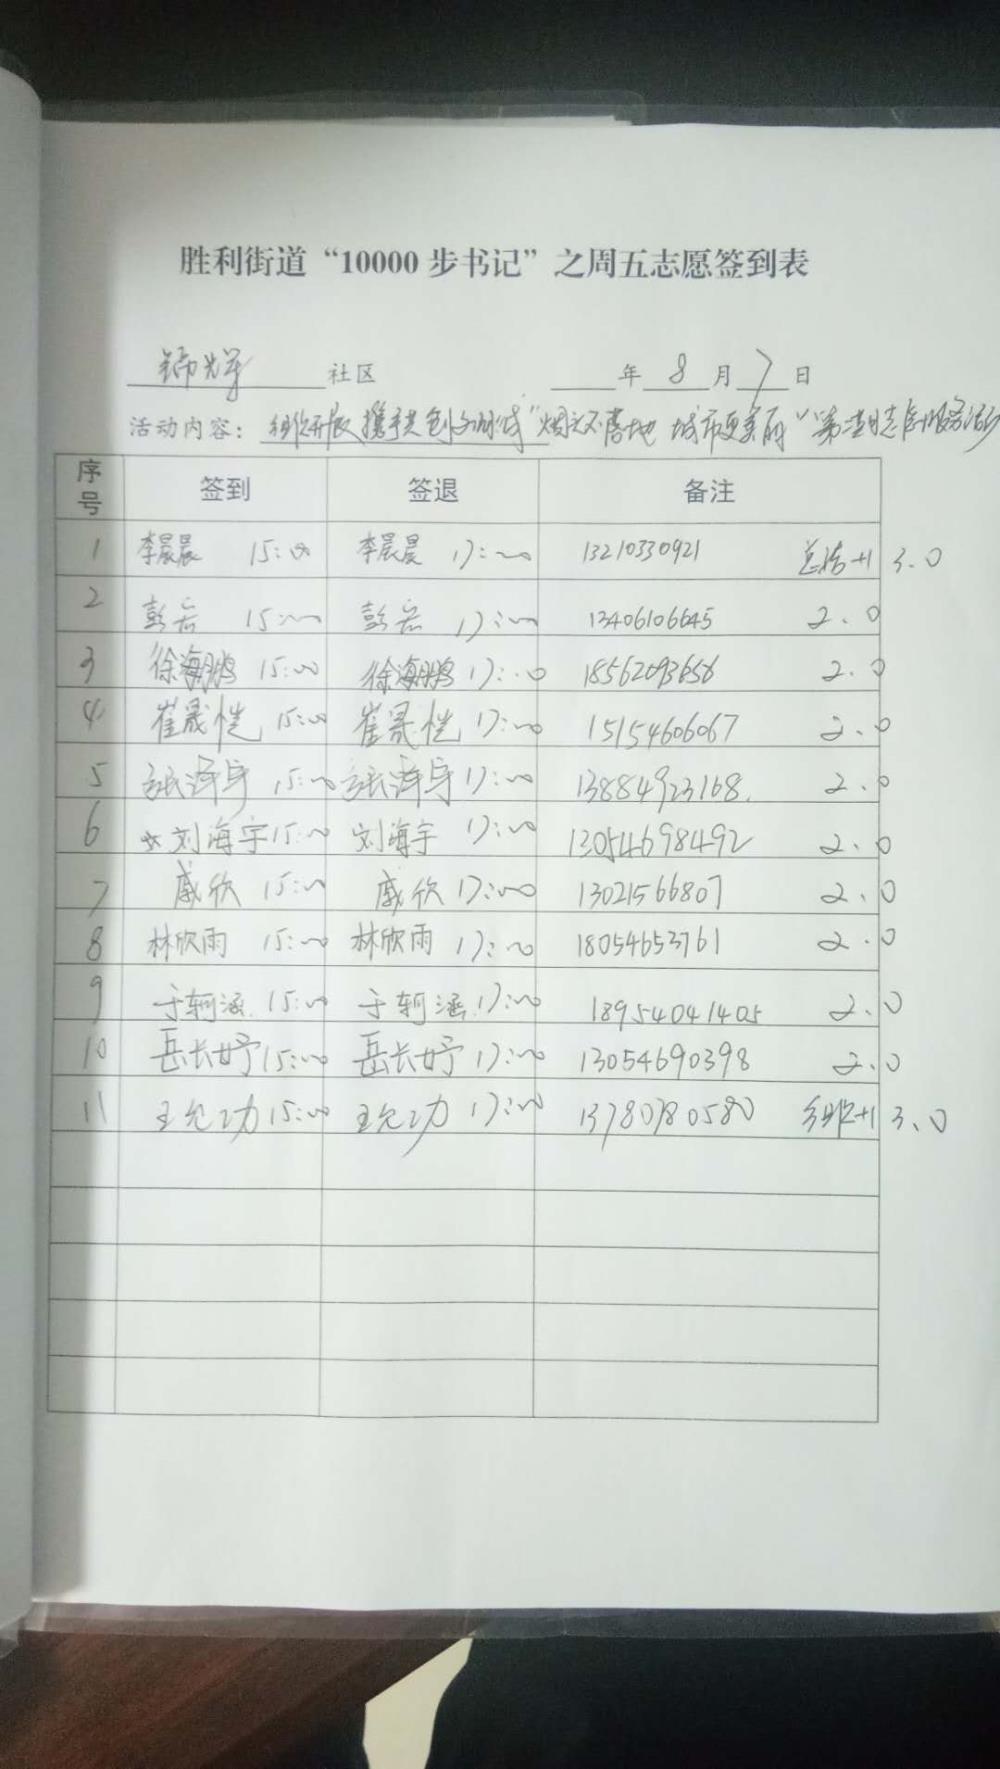 胜利街道“10000步书记”之周五志愿签到表
锦华 社区 年 8 月 7 日
活动内容： 组织开展 携手共创文明城 “烟头不落地 城市更美丽” 志愿服务活动
序号 签到 签退 备注
1 李晨晨 15:00 李晨晨 17:00 13210330921 总结+1 3.0
2 彭云 15:00 彭云 17:00 13406106645 2.0
3 徐海鹏 15:00 徐海鹏 17:00 18562093656 2.0
4 崔晟恺 15:00 崔晟恺 17:00 15154606067 2.0
5 张泽宇 15:00 张泽宇 17:00 13884923168 2.0
6 刘海宇 15:00 刘海宇 17:00 13054698492 2.0
7 戚欣 15:00 戚欣 17:00 13021566807 2.0
8 林欣雨 15:00 林欣雨 17:00 18054653761 2.0
9 于轲涵 15:00 于轲涵 17:00 18954041405 2.0
10 岳长妤 15:00 岳长妤 17:00 13054690398 2.0
11 王允功 15:00 王允功 17:00 13780780580 组织+1 3.0